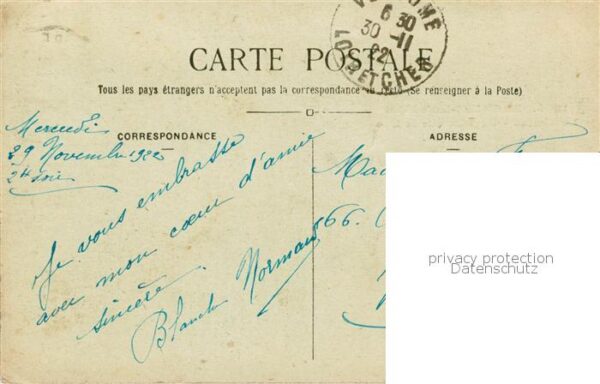 VENDOME
6 30
30 -11
22
LOIR-ET-CHER
CARTE POSTALE
Tous les pays étrangers n'acceptent pas la correspondance au recto (Se renseigner à la Poste)
CORRESPONDANCE
ADRESSE
Mercredi
29 Novembre 1922
Je vous embrasse
avec mon cœur d'amie
sincère.
Blanch Normand
66.
privacy protection
Datenschutz